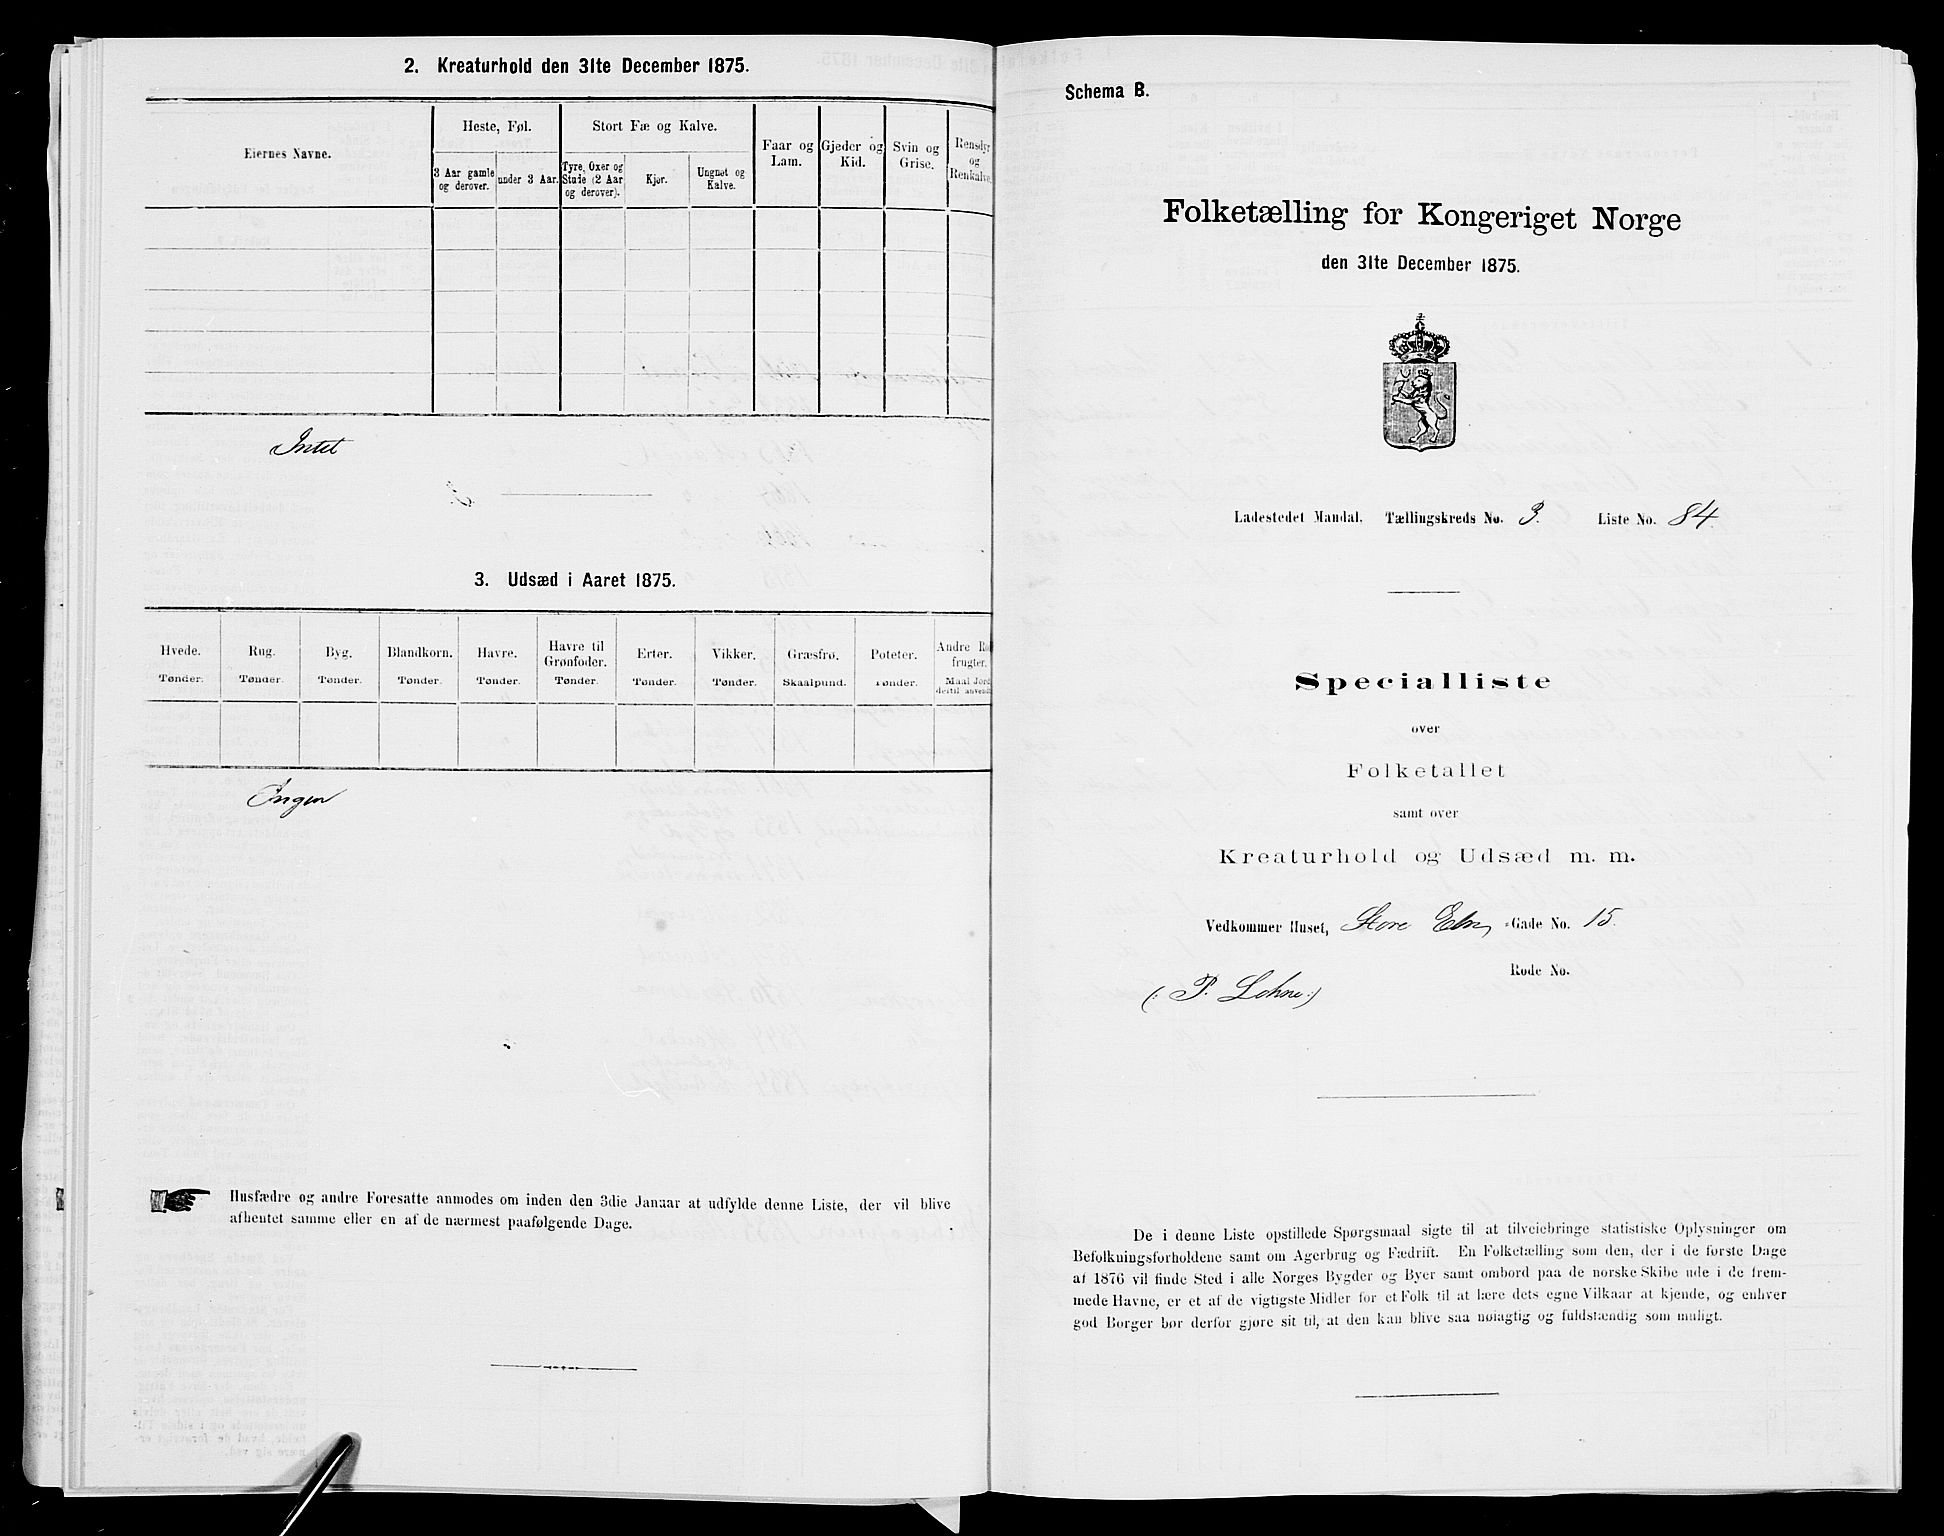 2. Kreaturhold den 31te December 1875.
Eiernes Navne.
Heste, Føl.
Stort Fæ og Kalve.
Faar og Lam.
Gjeder og Kid.
Svin og Grise.
Rensdyr og Renkalve.
3 Aar gamle og derover.
under 3 Aar.
Tyre, Oxer og Stude (2 Aar og derover).
Kjør.
Ungnøt og Kalve.
Intet
3. Udsæd i Aaret 1875.
Hvede. Rug. Byg. Blandkorn. Havre. Havre til Grønfoder. Erter. Vikker. Græsfrø. Poteter. Andre Ro frugter.
Tønder. Tønder. Tønder. Tønder. Tønder. Tønder. Tønder. Tønder. Skaalpund. Tønder. Maal Jord dertil anvendt
Ingen
Husfædre og andre Foresatte anmodes om inden den 3die Januar at udfylde denne Liste, der vil blive
afhentet samme eller en af de nærmest paafølgende Dage.
Schema B.
Folketælling for Kongeriget Norge
den 31te December 1875.
Ladestedet Mandal. Tællingskreds No. 3. Liste No. 84.
Specialliste
over
Folketallet
samt over
Kreaturhold og Udsæd m. m.
Vedkommer Huset, Store Elve-Gade No. 15.
Rode No.
(: P. Lohne :)
De i denne Liste opstillede Spørgsmaal sigte til at tilveiebringe statistiske Oplysninger om
Befolkningsforholdene samt om Agerbrug og Fædrift. En Folketælling som den, der i de første Dage
af 1876 vil finde Sted i alle Norges Bygder og Byer samt ombord paa de norske Skibe ude i de frem-
mede Havne, er et af de vigtigste Midler for et Folk til at lære dets egne Vilkaar at kjende, og enhver
god Borger bør derfor gjøre sit til, at den kan blive saa nøiagtig og fuldstændig som muligt.